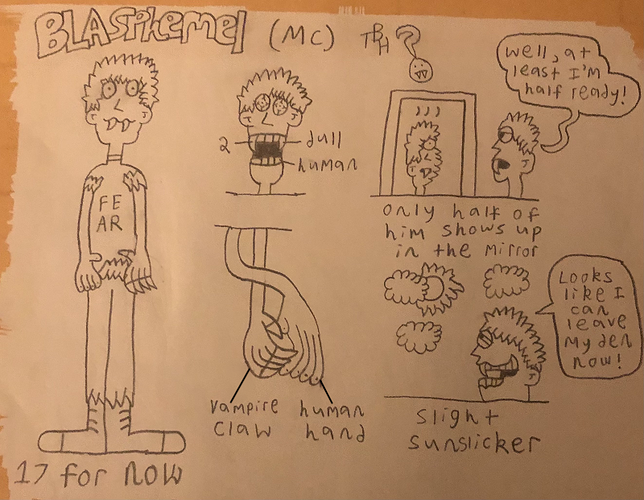 BLASPHEMEL (MC)
TBH?
FE
AR
17 for now
2
dull
human
vampire
claw
human
hand
well, at
least I'm
half ready!
only half of
him shows up
in the mirror
Looks
like I
can
leave
my den
now!
slight
sunslicker